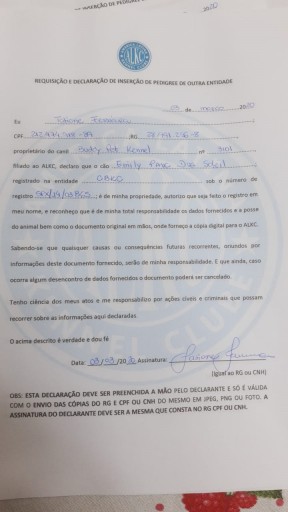 INSERÇÃO DE PEDIGREE
2020
ALKC
REQUISIÇÃO E DECLARAÇÃO DE INSERÇÃO DE PEDIGREE DE OUTRA ENTIDADE
03 de março 2020
Eu
CPF /RG
proprietário do canil Kennel nº
filiado ao ALKC, declaro que o cão
registrado na entidade sob o número de
registro é de minha propriedade, autorizo que seja feito o registro em
meu nome, e reconheço que é de minha total responsabilidade os dados fornecidos e a posse
do animal bem como o documento original em mãos, onde forneço a cópia digital para o ALKC.
Sabendo-se que quaisquer causas ou consequências futuras recorrentes, oriundos por
informações deste documento fornecido, serão de minha responsabilidade. E que ainda, caso
ocorra algum desencontro de dados fornecidos o documento poderá ser cancelado.
Tenho ciência dos meus atos e me responsabilizo por ações civeis e criminais que possam
recorrer sobre as informações aqui declaradas.
O acima descrito é verdade e dou fé
Data: 03/03/20 Assinatura:
(Igual ao RG ou CNH)
OBS: ESTA DECLARAÇÃO DEVE SER PREENCHIDA A MÃO PELO DECLARANTE E SÓ É VÁLIDA
COM O ENVIO DAS CÓPIAS DO RG E CPF OU CNH DO MESMO EM JPEG, PNG OU FOTO. A
ASSINATURA DO DECLARANTE DEVE SER A MESMA QUE CONSTA NO RG CPF OU CNH.